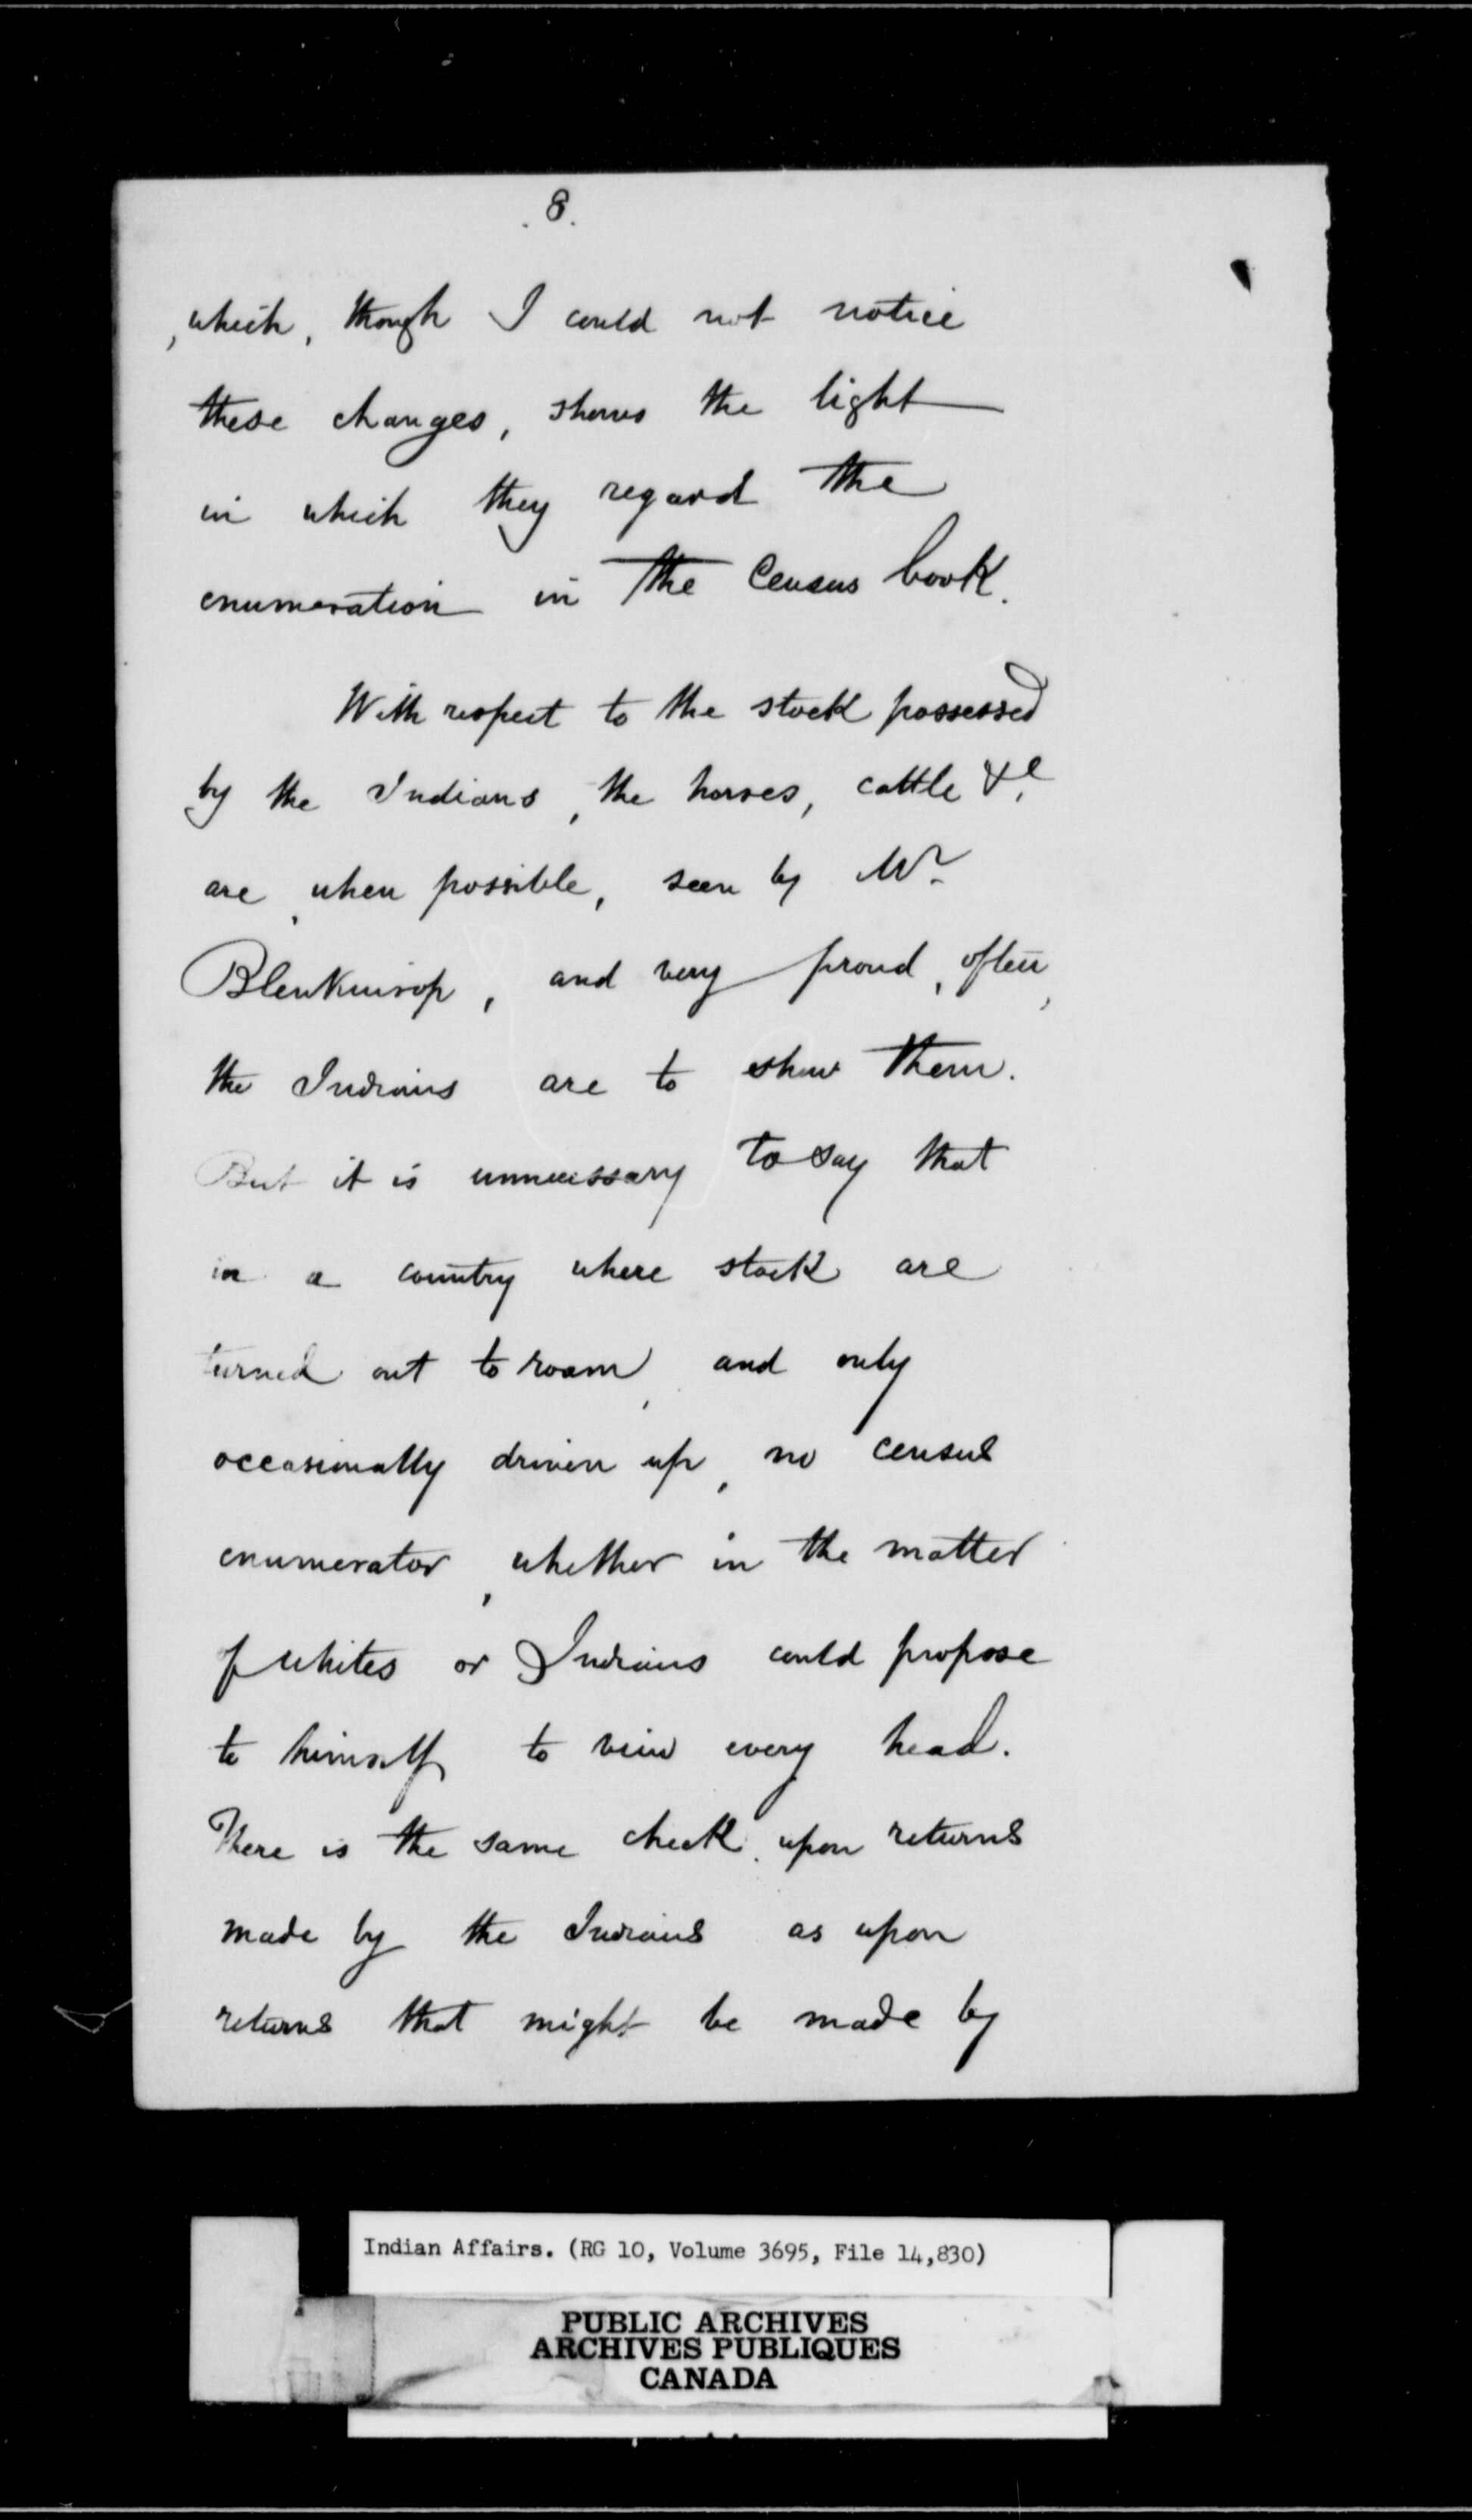 . 8.
, which, though I could not notice
these changes, shows the light
in which they regard the
enumeration in the Census book.
With respect to the stock possessed
by the Indians, the horses, cattle &c.
are, when possible, seen by Mr.
Blenkinsop, and very proud, often,
the Indians are to show them.
But it is unnecessary to say that
in a country where stock are
turned out to roam, and only
occasionally driven up, no census
enumerator, whether in the matter
of whites or Indians could propose
to himself to view every head.
There is the same check upon returns
made by the Indians as upon
returns that might be made by
Indian Affairs. (RG 10, Volume 3695, File 14,830)
PUBLIC ARCHIVES
ARCHIVES PUBLIQUES
CANADA